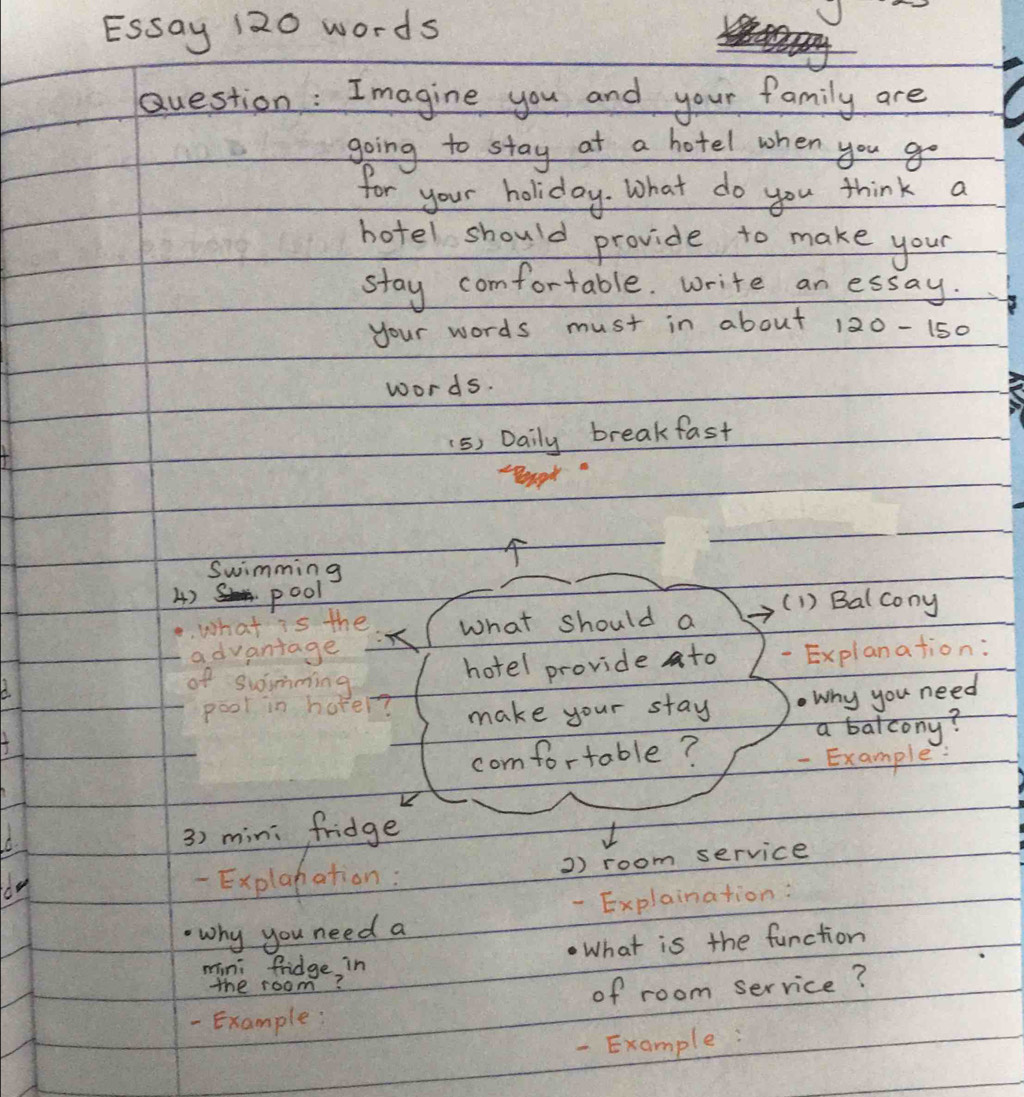 Essay 120 words
Question : Imagine you and your family are
going to stay at a hotel when you go
for your holiday. What do you think a
hotel should provide to make your
stay comfortable. Write an essay.
Your words must in about 120 - 150
words.
(5) Daily breakfast
Swimming
4) pool
• What is the
advantage
of swimming
pool in hotel?
What should a
hotel provide to
make your stay
comfortable ?
(1) Balcony
- Explanation :
• Why you need
a balcony?
- Example :
3) mini fridge
- Explanation :
• Why you need a
mini fridge in
the room ?
- Example :
2) room service
- Explaination :
• What is the function
of room service ?
- Example :